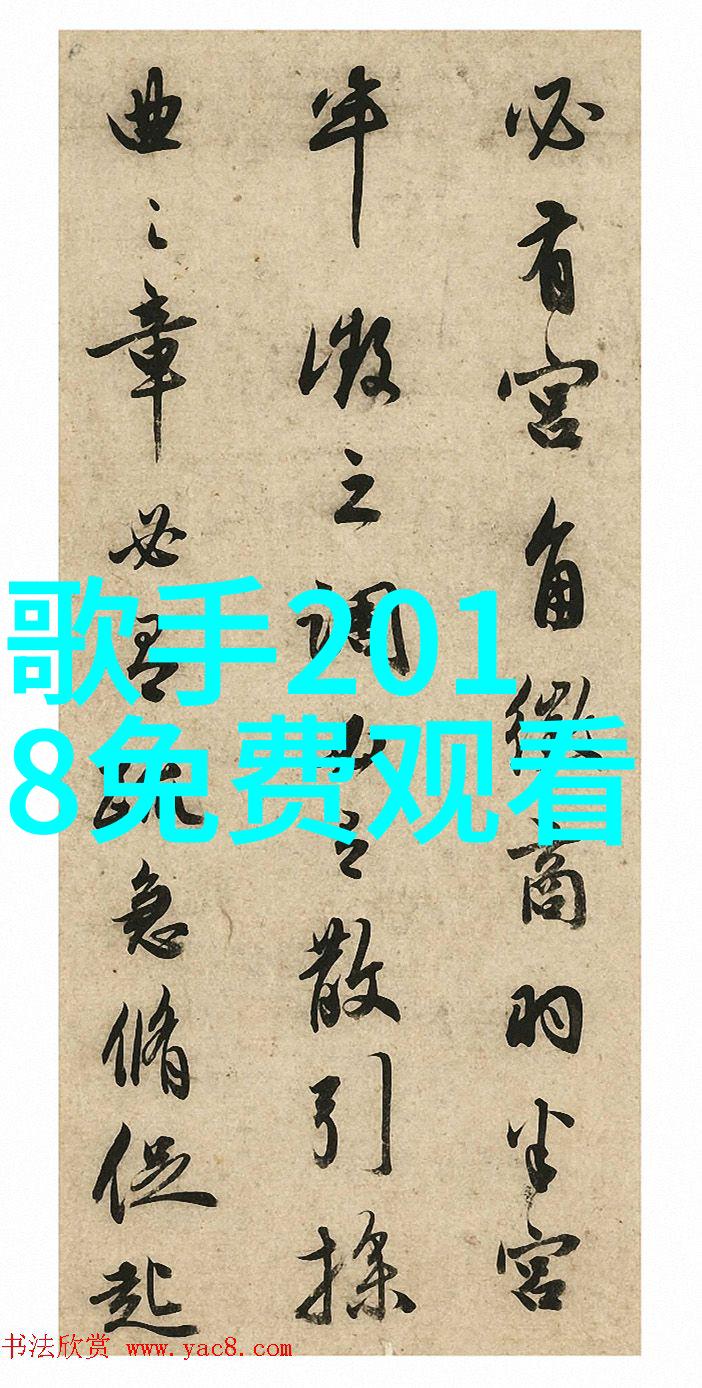 必有宫角徵商羽半宫
半徵之调散引操
曲之章必急脩促起
歌手201
8免费观看
书法欣赏 www.yac8.com